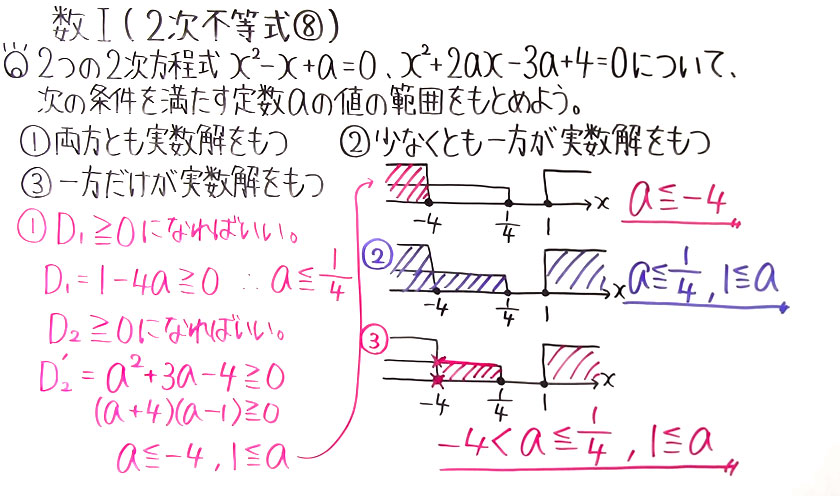 数I(2次不等式⑧)
6 2つの2次方程式 x²-x+a=0、x²+2ax-3a+4=0について、
次の条件を満たす定数aの値の範囲をもとめよう。
①両方とも実数解をもつ ②少なくとも一方が実数解をもつ
③一方だけが実数解をもつ
① D₁≧0になればいい。
D₁=1-4a≧0 ∴a≦1/4
D₂≧0になればいい。
D₂'=a²+3a-4≧0
(a+4)(a-1)≧0
a≦-4, 1≦a
-4 1/4 1 x
a≦-4
②
-4 1/4 1 x
a≦1/4, 1≦a
③
-4 1/4 1 x
-4<a≦1/4, 1≦a